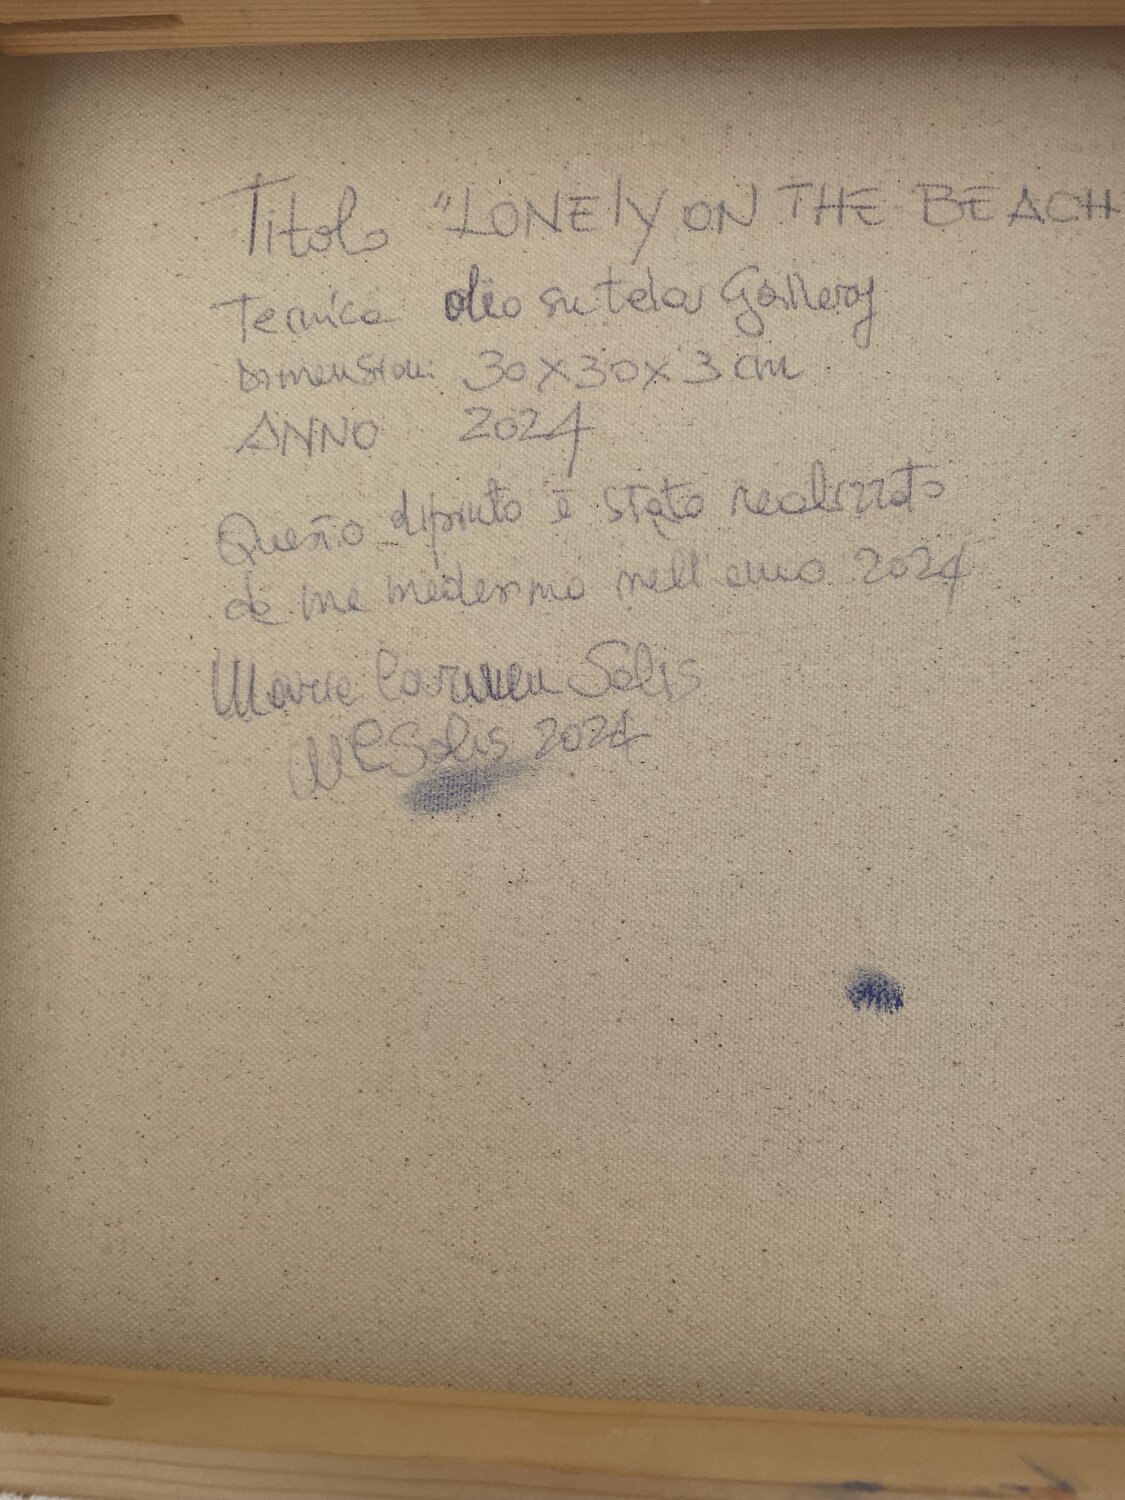 Titolo "LONELY ON THE BEACH
Tecnica olio su tela Gallery
Dimensioni 30x30x3 cm
ANNO 2024
Questo dipinto è stato realizzato
da me medesima nell'anno 2024
Maria Carmen Solis
MC Solis 2024